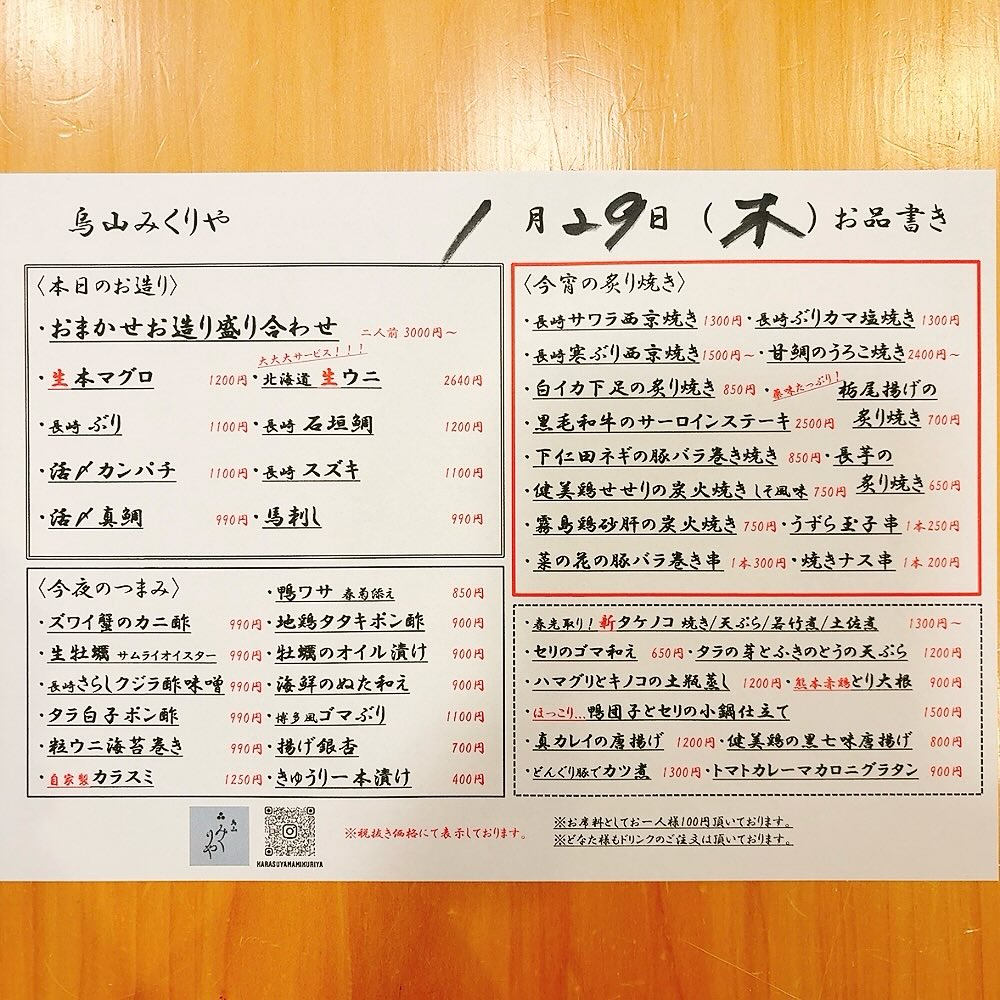 烏山みくりや
1月29日（木）お品書き
〈本日のお造り〉
・おまかせお造り盛り合わせ 二人前 3000円～
大大大サービス！！！
・生本マグロ 1200円・北海道 生ウニ 2640円
・長崎 ぶり 1100円・長崎 石垣鯛 1200円
・活〆カンパチ 1100円・長崎 スズキ 1100円
・活〆真鯛 990円・馬刺し 990円
〈今夜のつまみ〉
・鴨ワサ 春菊添え 850円
・ズワイ蟹のカニ酢 990円・地鶏タタキポン酢 900円
・生牡蠣 サムライオイスター 990円・牡蠣のオイル漬け 900円
・長崎さらしクジラ酢味噌 990円・海鮮のぬた和え 900円
・タラ白子ポン酢 990円・博多風ゴマぶり 1100円
・粒ウニ海苔巻き 990円・揚げ銀杏 700円
・自家製カラスミ 1250円・きゅうり一本漬け 400円
〈今宵の炙り焼き〉
・長崎サワラ西京焼き 1300円・長崎ぶりカマ塩焼き 1300円
・長崎寒ぶり西京焼き 1500円～・甘鯛のうろこ焼き 2400円～
・白イカ下足の炙り焼き 850円・薬味たっぷり！栃尾揚げの
・黒毛和牛のサーロインステーキ 2500円 炙り焼き 700円
・下仁田ネギの豚バラ巻き焼き 850円・長芋の
・健美鶏せせりの炭火焼き しそ風味 750円 炙り焼き 650円
・霧島鶏砂肝の炭火焼き 750円・うずら玉子串 1本250円
・菜の花の豚バラ巻き串 1本300円・焼きナス串 1本200円
・春先取り！新タケノコ 焼き/天ぷら/若竹煮/土佐煮 1300円～
・セリのゴマ和え 650円・タラの芽とふきのとうの天ぷら 1200円
・ハマグリとキノコの土瓶蒸し 1200円・熊本赤鶏とり大根 900円
・ほっこり...鴨団子とセリの小鍋仕立て 1500円
・真カレイの唐揚げ 1200円・健美鶏の黒七味唐揚げ 800円
・どんぐり豚でカツ煮 1300円・トマトカレーマカロニグラタン 900円
烏山
みくりや
KARASUYAMAMIKURIYA
※税抜き価格にて表示しております。
※お席料としてお一人様100円頂いております。
※どなた様もドリンクのご注文は頂いております。